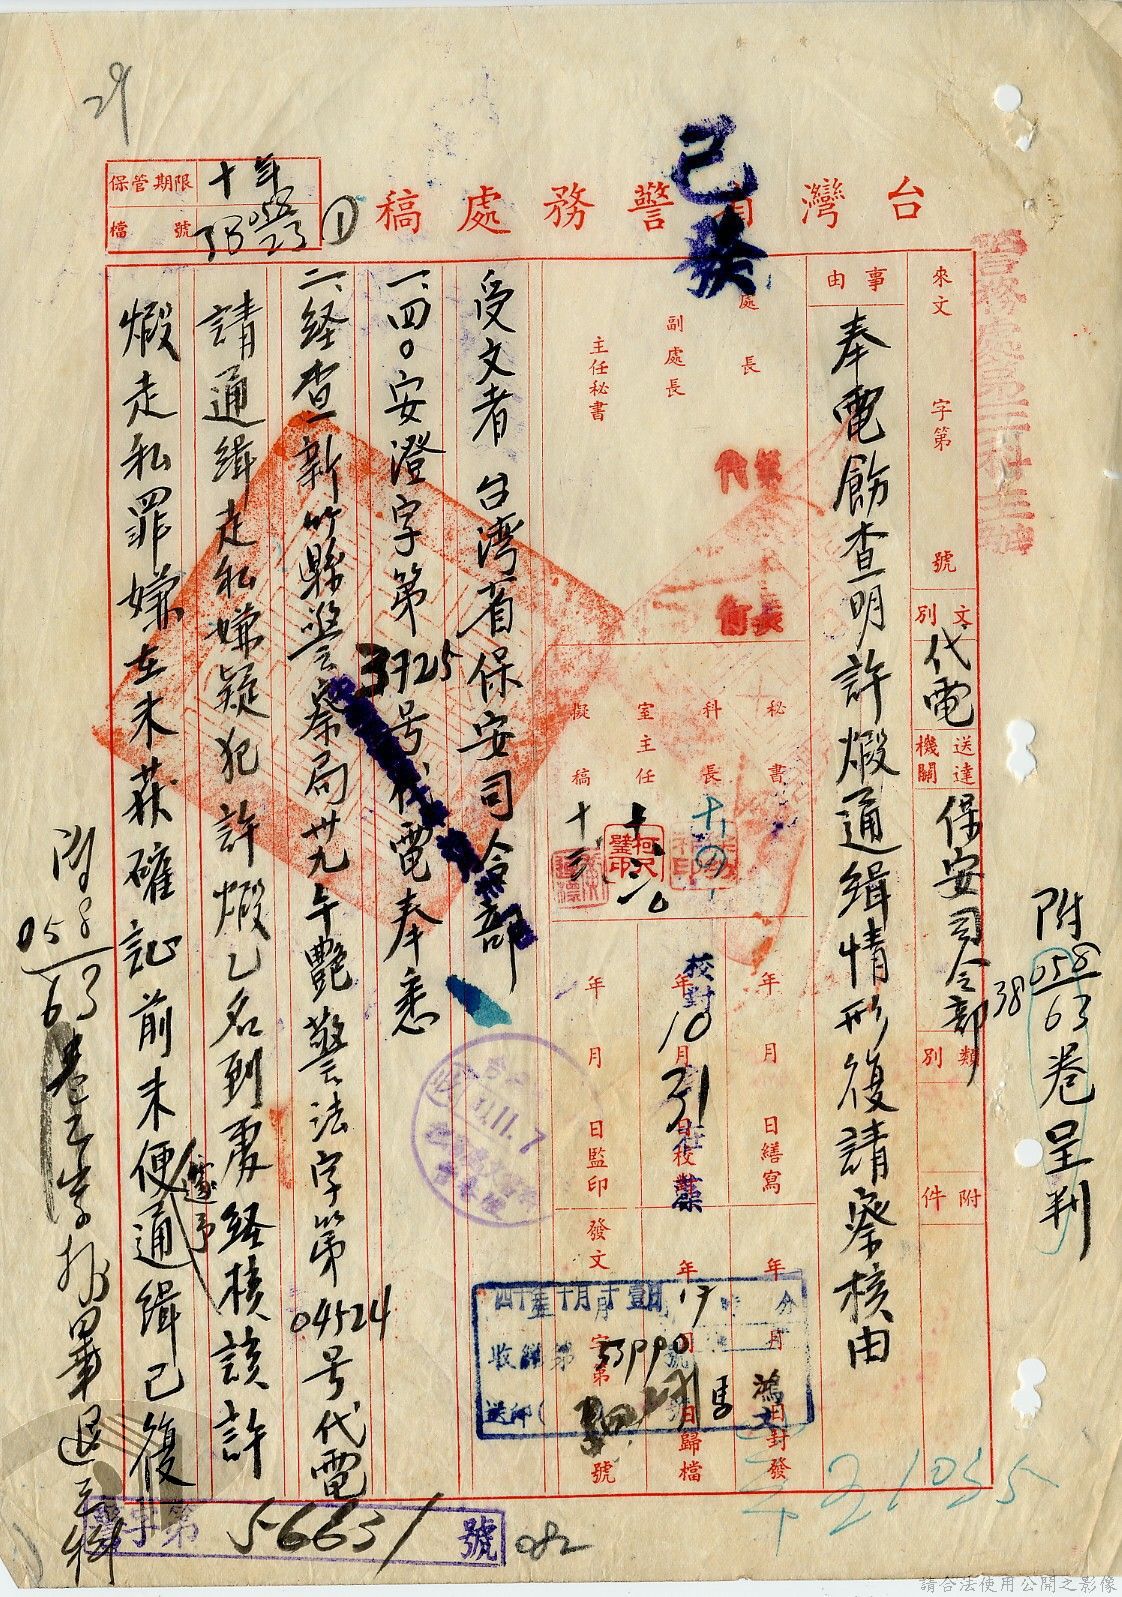 29
保管期限 十年
檔號
①
台灣省警務處稿
已發
附
058
63
卷呈判
38
來文 字第 號
文別 代電
送達機關 保安司令部
類別
附件
事由 奉電飭查明許煅通緝情形復請察核由
處長
副處長
主任秘書
秘書
科長
室主任
擬稿
柯尺璧印
年 月 日繕寫
年 月 日校對
年 月 日監印
校對
10
31
年 月 日封發
年 月 日歸檔
發文 字第 號
四十年十月十壹日
受文者 台湾省保安司令部
一、四〇安澄字第3725号代電奉悉
二、経查新竹縣警察局卅九午艷警法字第04524号代電
請通緝走私嫌疑犯許煅乙名到處経核該許
煅走私罪嫌在未获確証前未便遽予通緝已復
附058
63
卷
退三科
字第56631號
082
21035
請合法使用公開之影像